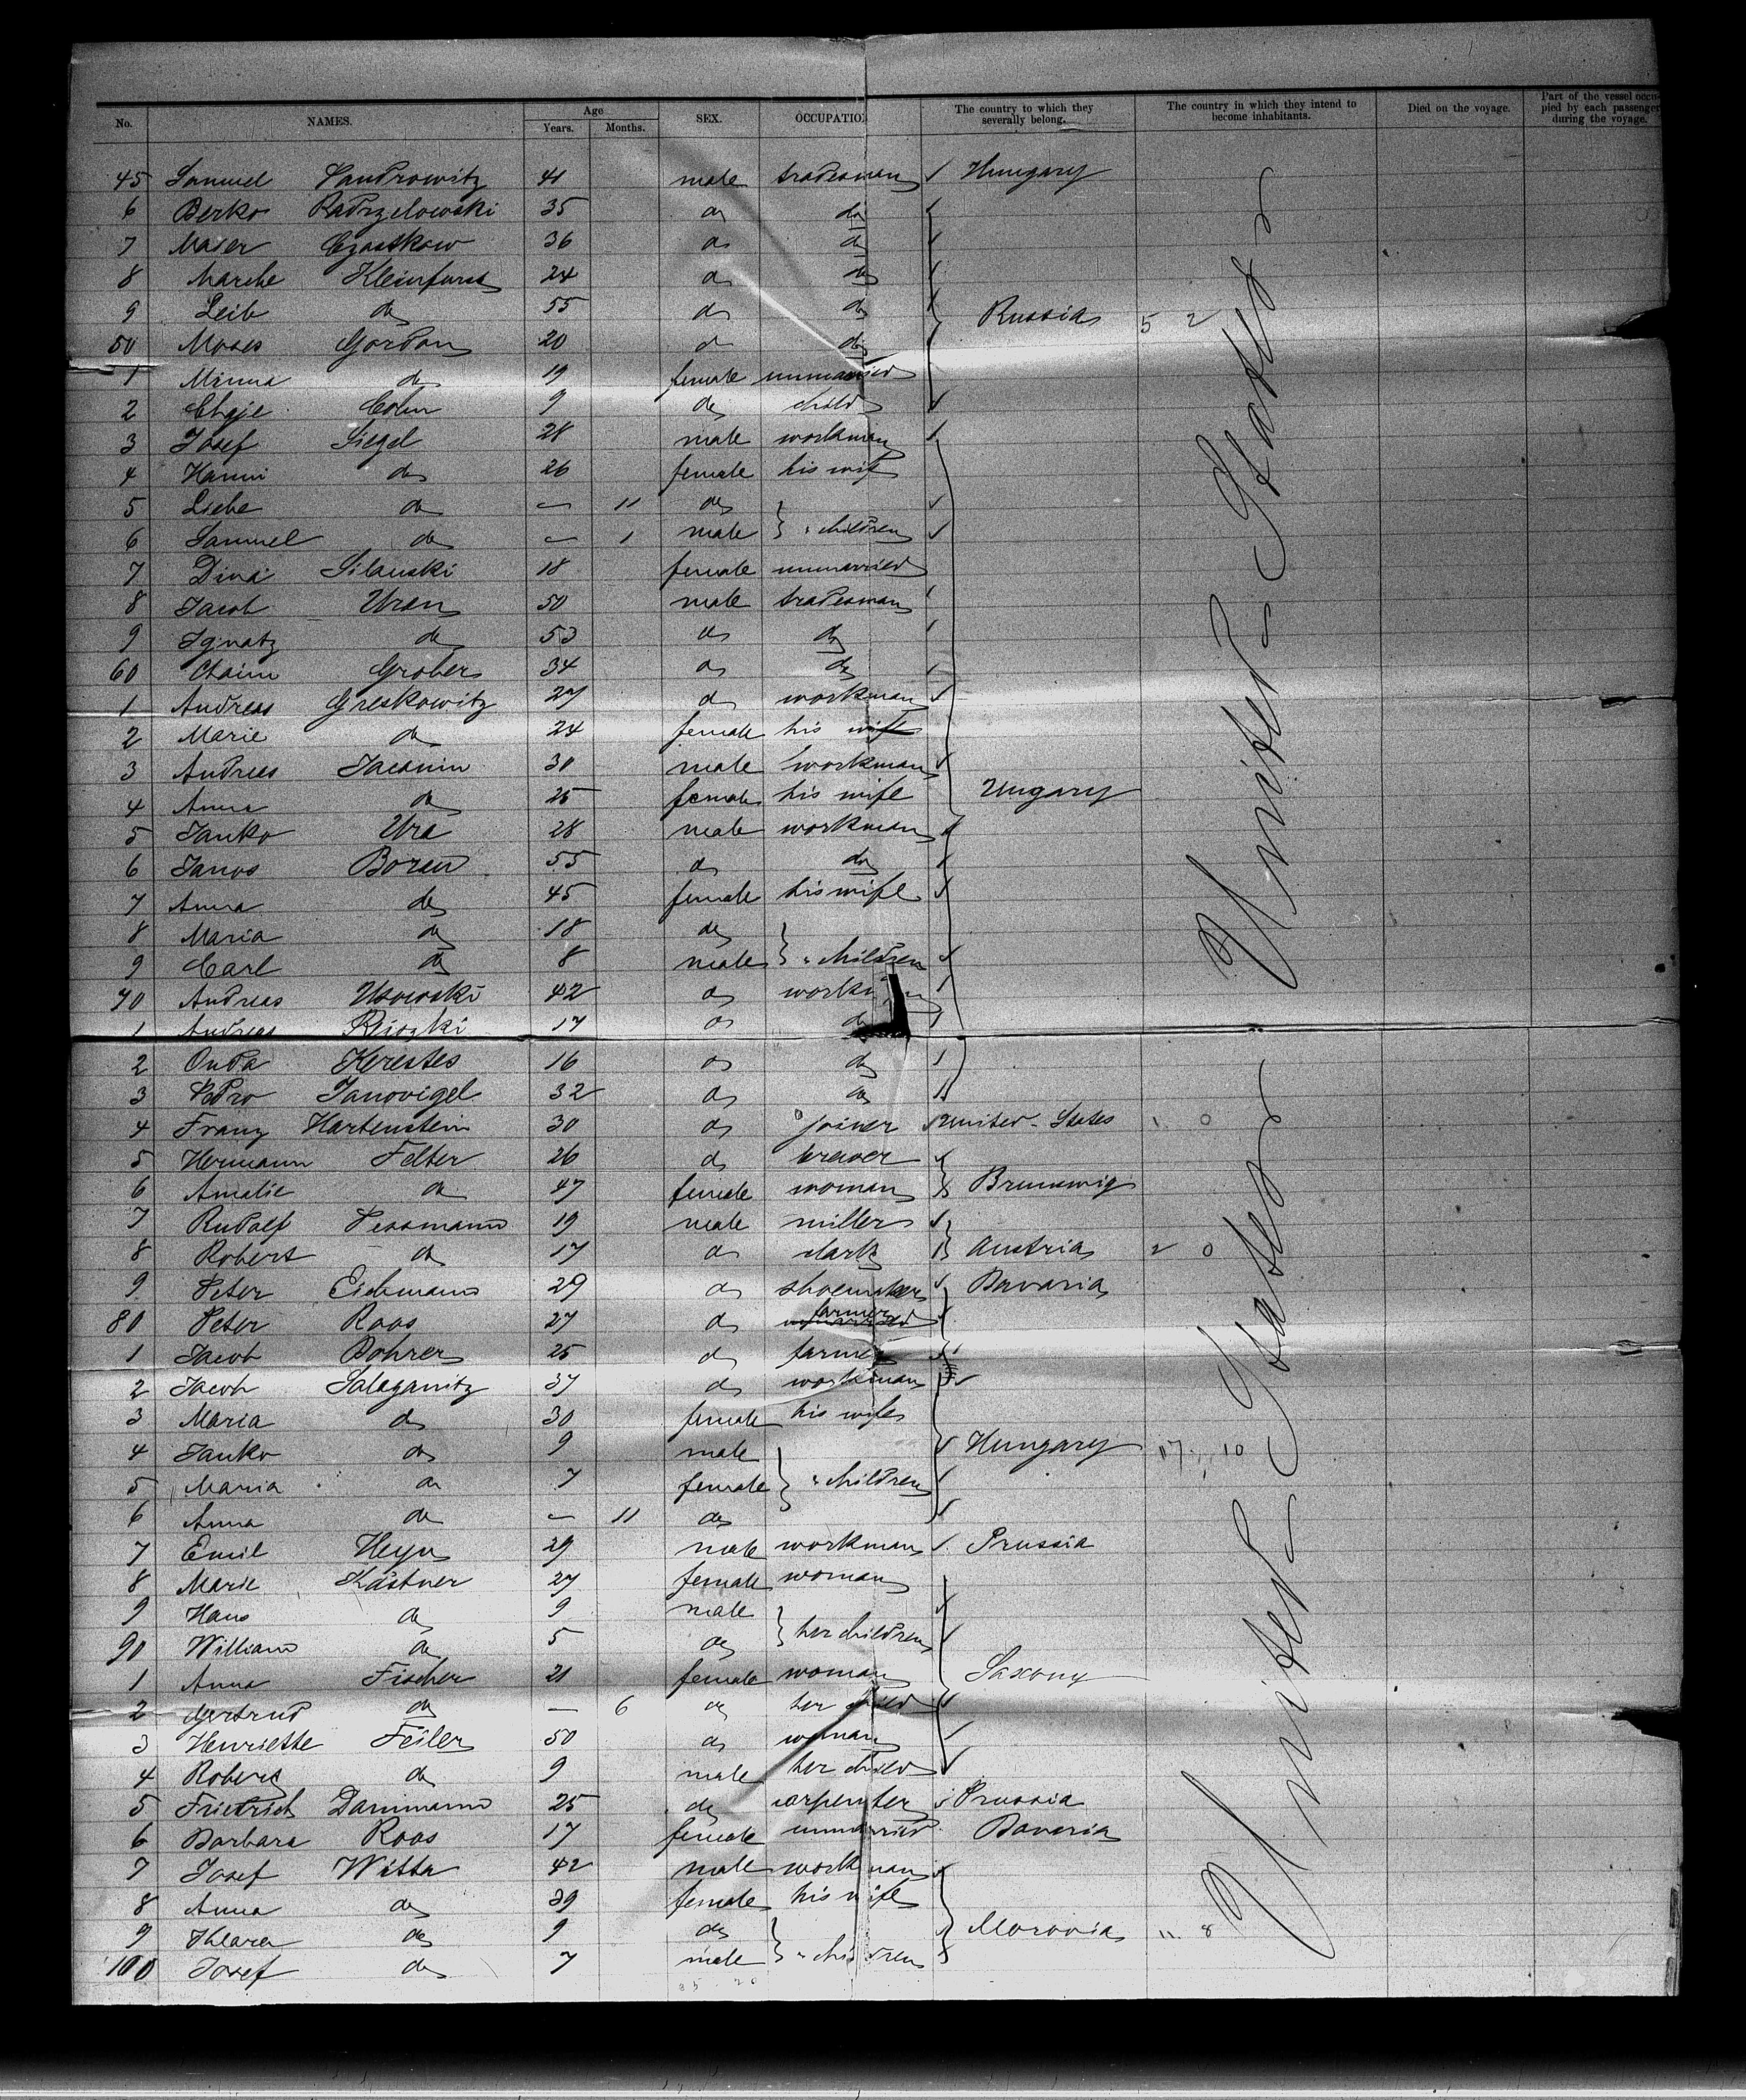 No. NAMES. Age Years. Months. SEX. OCCUPATIO The country to which they severally belong. The country in which they intend to become inhabitants. Died on the voyage. Part of the vessel occupied by each passenger during the voyage.
45 Samuel Sandrowitz 41 male tradesman Hungary
6 Berko Radrzelowski 35 do do
7 Maser Czastkow 36 do do
8 Marche Kleinfurst 24 do do
9 Leib do 55 do do Russia 5 2
50 Moses Gordon 20 do do
1 Minna do 19 female unmarried
2 Chaje Cohn 9 do child
3 Josef Siegel 28 male workman
4 Hanni do 26 female his wife
5 Liebe do — 11 do
6 Samuel do — 1 male } " children
7 Dina Silauski 18 female unmarried
8 Jacob Uran 50 male tradesman
9 Ignatz do 53 do do
60 Chaim Grober 34 do do
1 Andreas Greskowitz 27 do workman
2 Marie do 24 female his wife
3 Andreas Jacanin 30 male workman
4 Anna do 25 female his wife Ungary
5 Janko Ura 28 male workman
6 Janos Boren 55 do do
7 Anna do 45 female his wife
8 Maria do 18 do
9 Carl do 8 male } " children
70 Andreas Usowski 42 do
1 Andreas 17 do do
2 Onda Kerestes 16 do do
3 Pedro Janovigel 32 do do
4 Franz Hartenstein 30 do joiner United-States 1 0
5 Hermann Felter 26 do brewer
6 Amalie do 47 female woman Brunswig
7 Rudolf Pessmann 19 male miller
8 Robert do 17 do clark Austria 2 0
9 Peter Eichmann 29 do shoemaker Bavaria
80 Peter Roos 27 do farmer
1 Jacob Bohrer 25 do farmer
2 Jacob Salaganitz 37 do workman
3 Maria do 30 female his wife
4 Janko do 9 male Hungary 17 10
5 Maria do 7 female } " children
6 Anna do — 11 do
7 Emil Heyn 29 male workman Prussia
8 Marie Kästner 27 female woman
9 Hans do 9 male
90 William do 5 do } her children
1 Anna Fischer 21 female woman Saxony
2 Gertrud do — 6 do her child
3 Henriette Feiler 50 do woman
4 Robert do 9 male her child
5 Friedrich Dammann 25 do carpenter Prussia
6 Barbara Roos 17 female unmarried Baveria
7 Josef Witta 42 male workman
8 Anna do 39 female his wife
9 Klara do 9 do Morovia 11 8
100 Josef do 7 male } " children
United-States
United-States